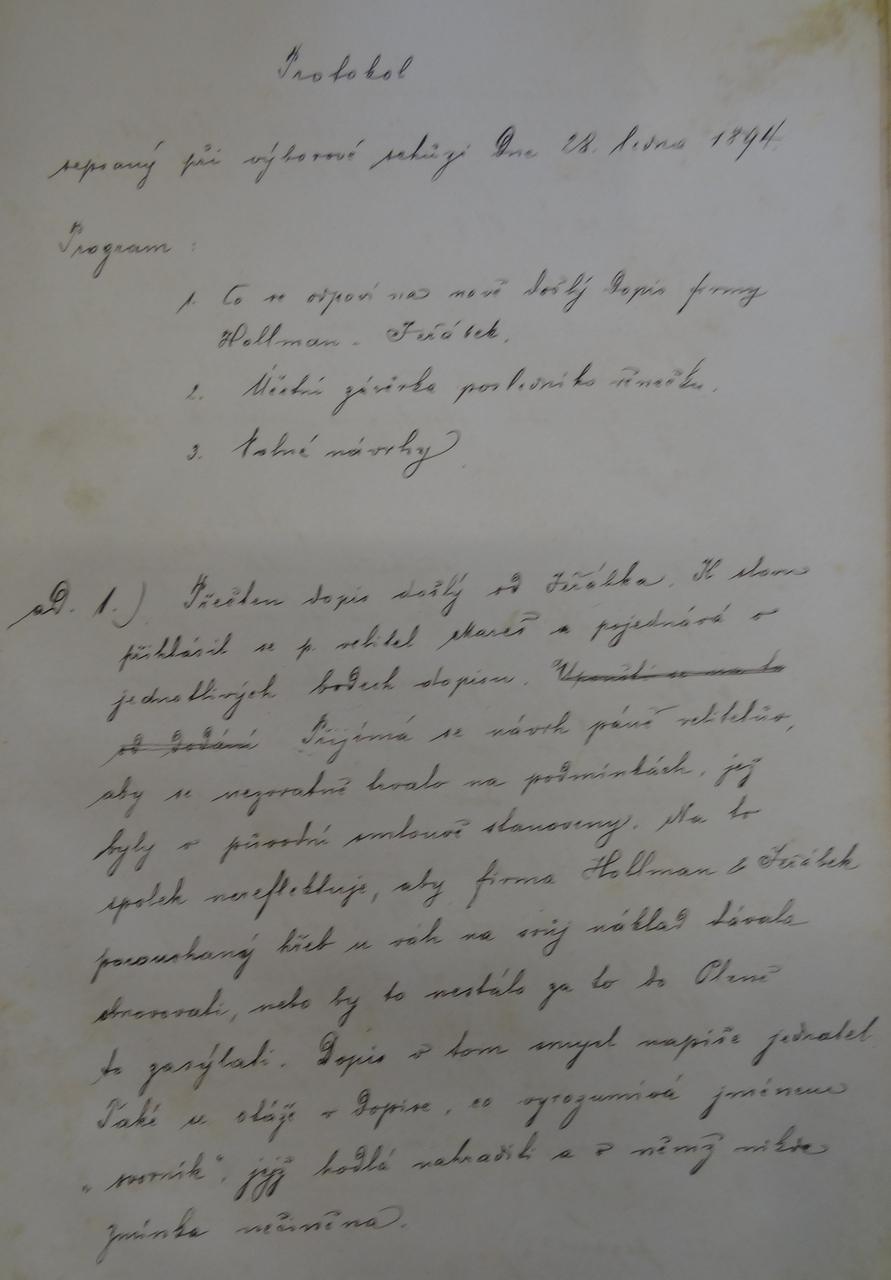 Protokol
sepsaný při výborové schůzi Dne 28. ledna 1894
Program :
1. Co se odpoví na nově došlý Dopis firmy
Hollman - Jeřábek.
2. Účetní závěrka posledního věnečku.
3. Volné návrhy
ad. 1.) Přečten dopis došlý od Jeřábka. K slovu
přihlásil se p. velitel Mareš a pojednává o
jednotlivých bodech dopisu. Upouští se na to
od Dodání Přijímá se návrh páně velitelův,
aby se nezvratně trvalo na podmínkách, jež
byly v původní smlouvě stanoveny. Na to
spolek nereflektuje, aby firma Hollman & Jeřábek
porouchaný hřeb u váh na svůj náklad dávala
spravovati, nebo by to nestálo za to do Plzně
to zasýlati. Dopis v tom smysl napíše jednatel
Také se otáže v Dopise, co vyrozumívá jménem
„svorník", jejž hodlá nahraditi a o němž nikde
zmínka nečiněna.